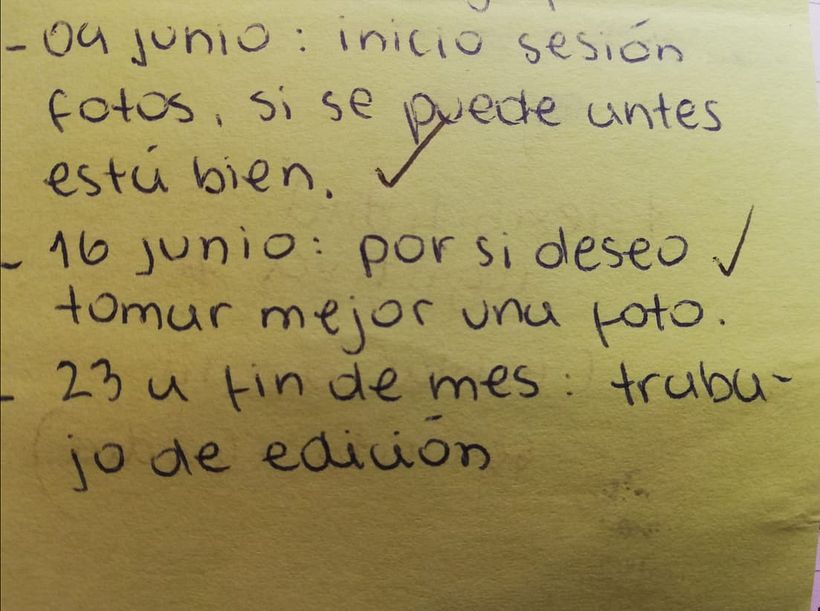 - 04 junio: inicio sesión
fotos, si se puede antes
está bien. ✓
- 16 junio: por si deseo ✓
tomar mejor una foto.
- 23 a fin de mes: traba-
jo de edición